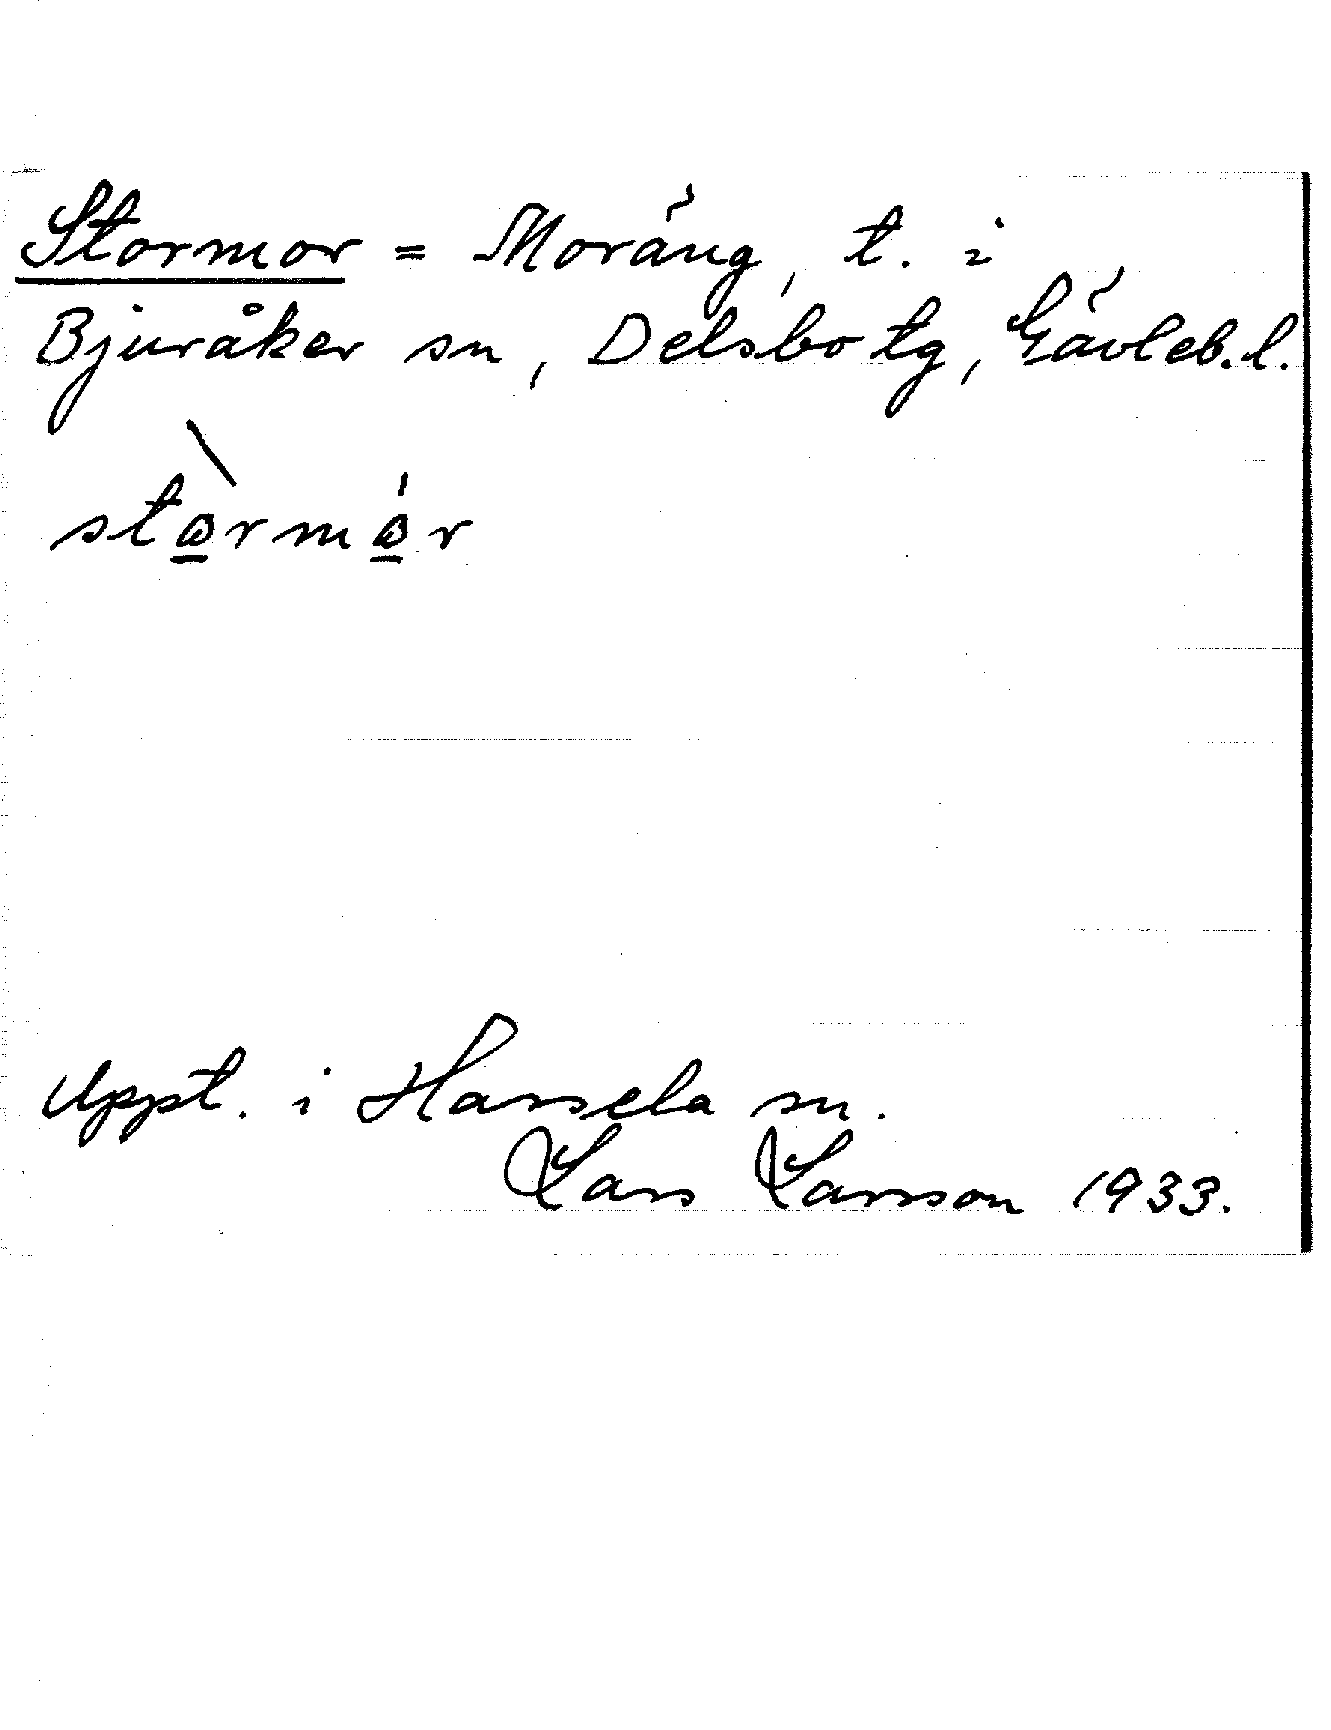 Stormor = Moräng, t. i
Bjuråker sn, Delsbo tg, Gävleb.l.
Uppt. i Hassela sn.
Lars Larsson 1933.